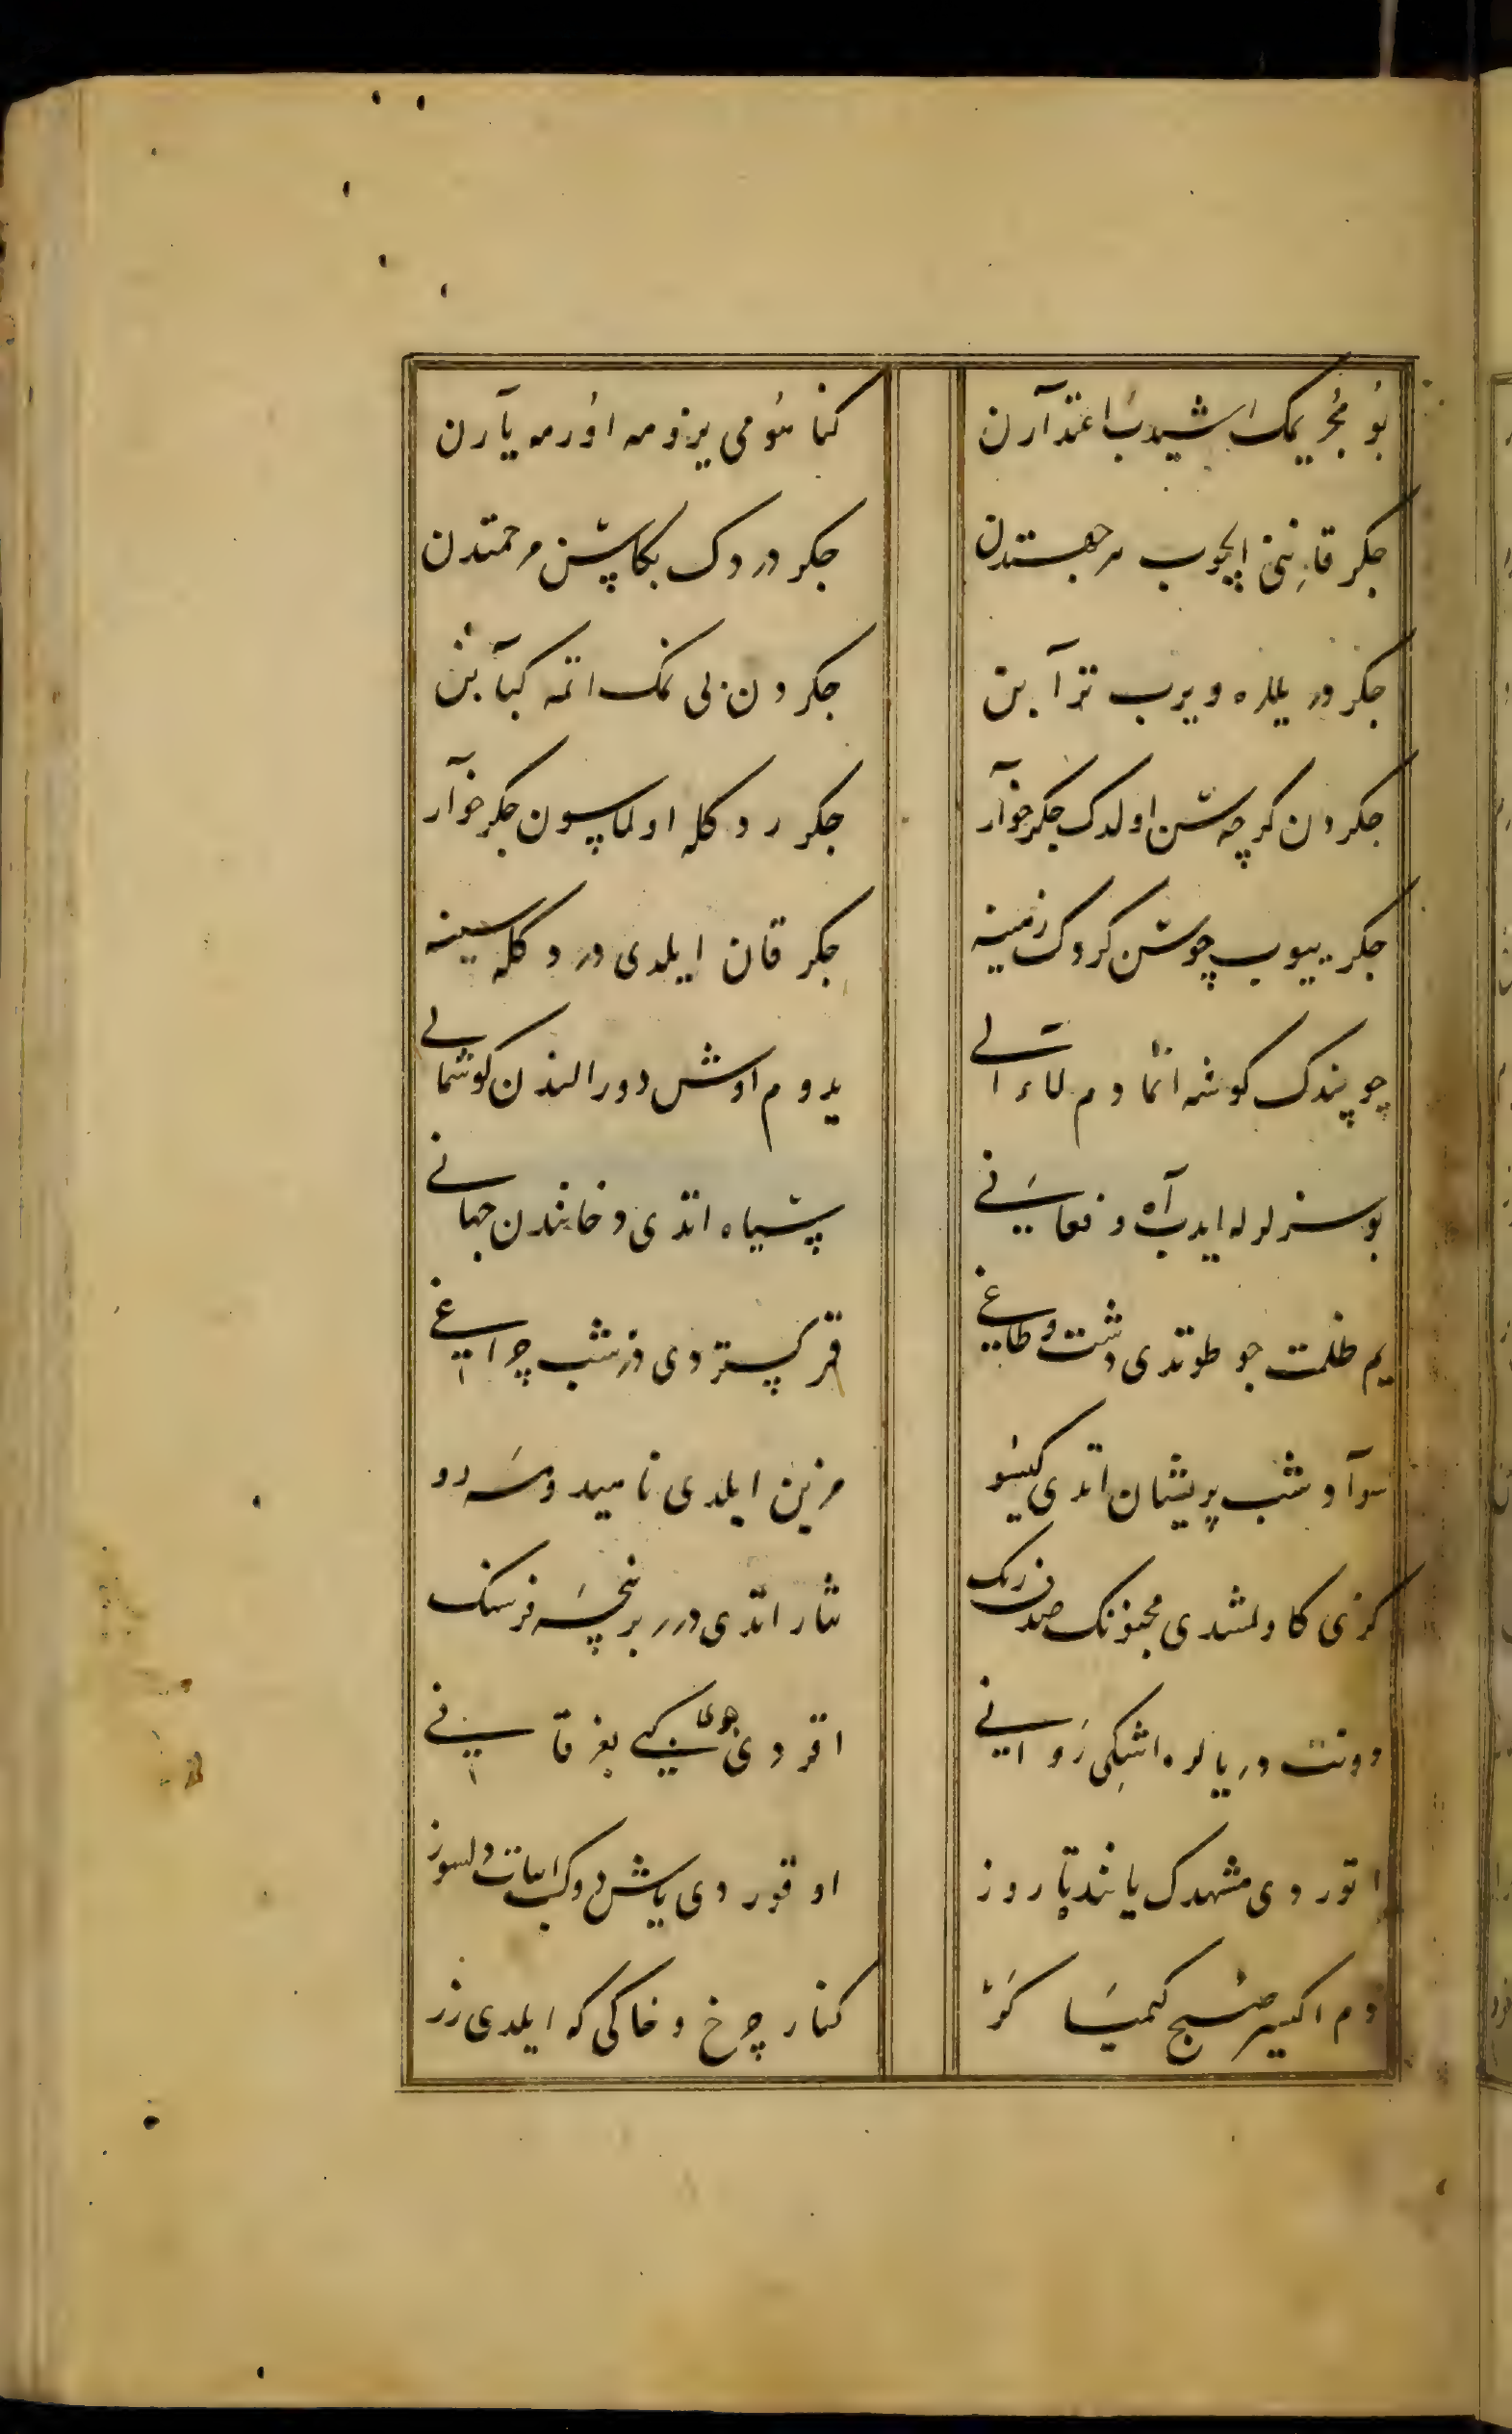 بو مجریمک اشیدب اعتذارن كناهومی یزومه اورمه یارن
جكر قانینی ایچوب مرحمتدن جكر دردك بكا سن مرحمتدن
جكر در یللره ویرب ترابن جكردن بی نمک اتمه كبابن
جكردن كرچه سن اولدک جكرخوار جكر در دكله اولماسون جكرخوار
جكر ییوب چو سن كردک زمینه جكر قان ایلدی درد كله سینه
چو پندک كوشه اتمادم یدوم اوش دور الندن كوشمالی
بو سزلرله ایدب آه و فغانی سیاه اتدی دخانندن جهانی
یم ظلمت چو طوتدی دشت و طاغی قمر كستردی در شب چراغی
سواد شب پریشان اتدی كیسو مزین ایلدی ناهید و مه رو
كزی كا ولمشدی مجنونک صدف رنک نثار اتدی درر بر نیچه فرسنک
دونت دریالره اشكی روانی اقردی كبی بغر قانی
اتوردی مشهدک یاننده تا روز اوقوردی یاش دوكب ابیات دلسوز
دم اكسیر صبح كیمیا كر كنار چرخ و خاكی كه ایلدی زر